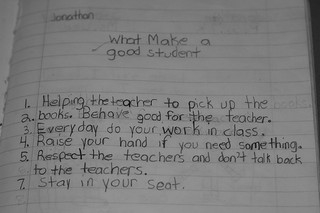 Jonathan
What Make a
good student
1. Helping the teacher to pick up the books
2. books. Behave good for the teacher.
3. Everyday do your work in class.
4. Raise your hand if you need something.
5. Respect the teachers and don't talk back
to the teachers.
7. Stay in your seat.